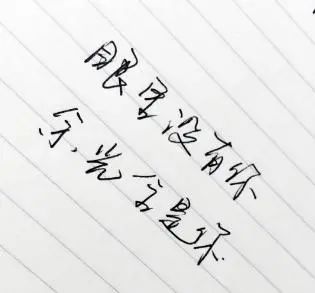 眼里没有你
余光全是你